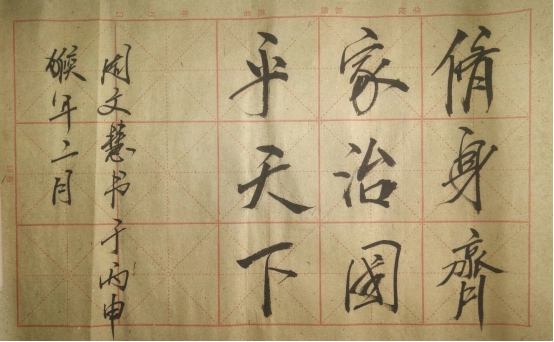 脩身齊
家治國
平天下
周文慧书于丙申
猴年二月